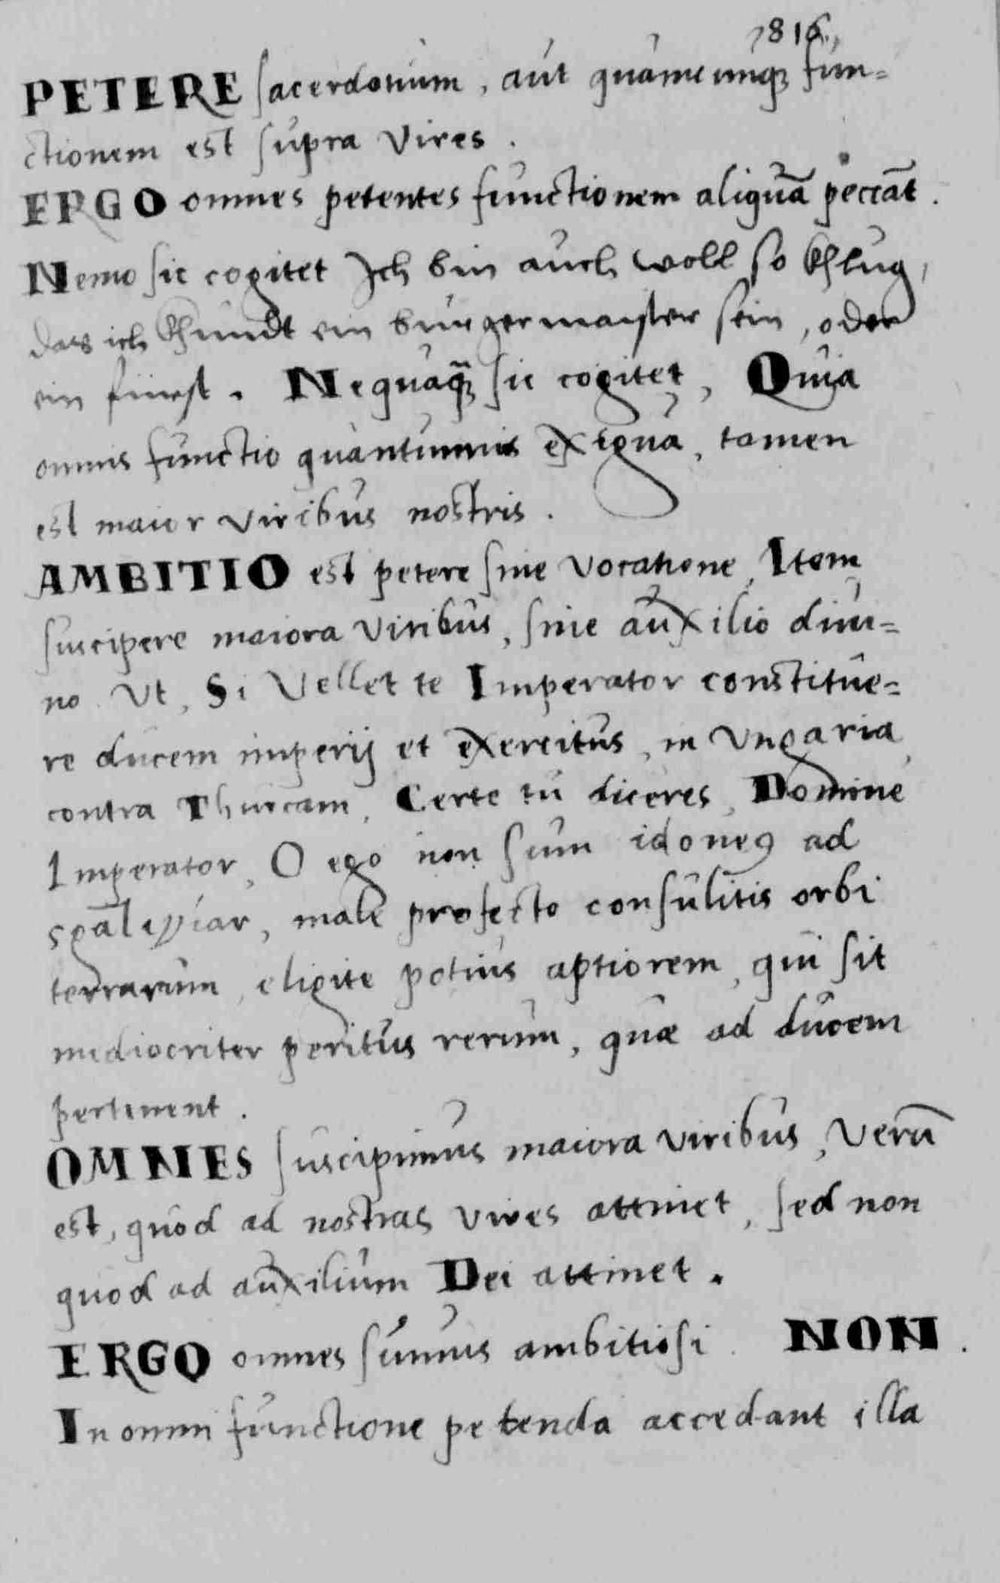 1816.
PETERE sacerdotium, aut quamcunqꝫ fun=
ctionem est supra vires.
ERGO omnes petentes functionem aliquā peccāt.
Nemo sic cogitet Ich bin auch woll so khlug,
das ich khundt ein burgermaister sein, oder
ein fürst. Nequaqꝫ sic cogitet, Quia
omnis functio quantumuis exigua, tamen
est maior viribus nostris.
AMBITIO est petere sine vocatione, Item
suscipere maiora viribus, sine auxilio diui=
no. Vt, Si Vellet te Imperator constitue=
re ducem imperij et exercitus, in Vngaria
contra Thurcam, Certe tu diceres, Domine
Imperator, O ego non sum idoneꝰ ad
male profecto consulitis orbi
terrarum, eligite potius aptiorem, qui sit
mediocriter peritus rerum, quæ ad ducem
pertinent.
OMNES suscipimus maiora viribus, verū
est, quod ad nostras vires attinet, sed non
quod ad auxilium Dei attinet.
ERGO omnes sumus ambitiosi. NON.
In omni functione petenda accedant illa